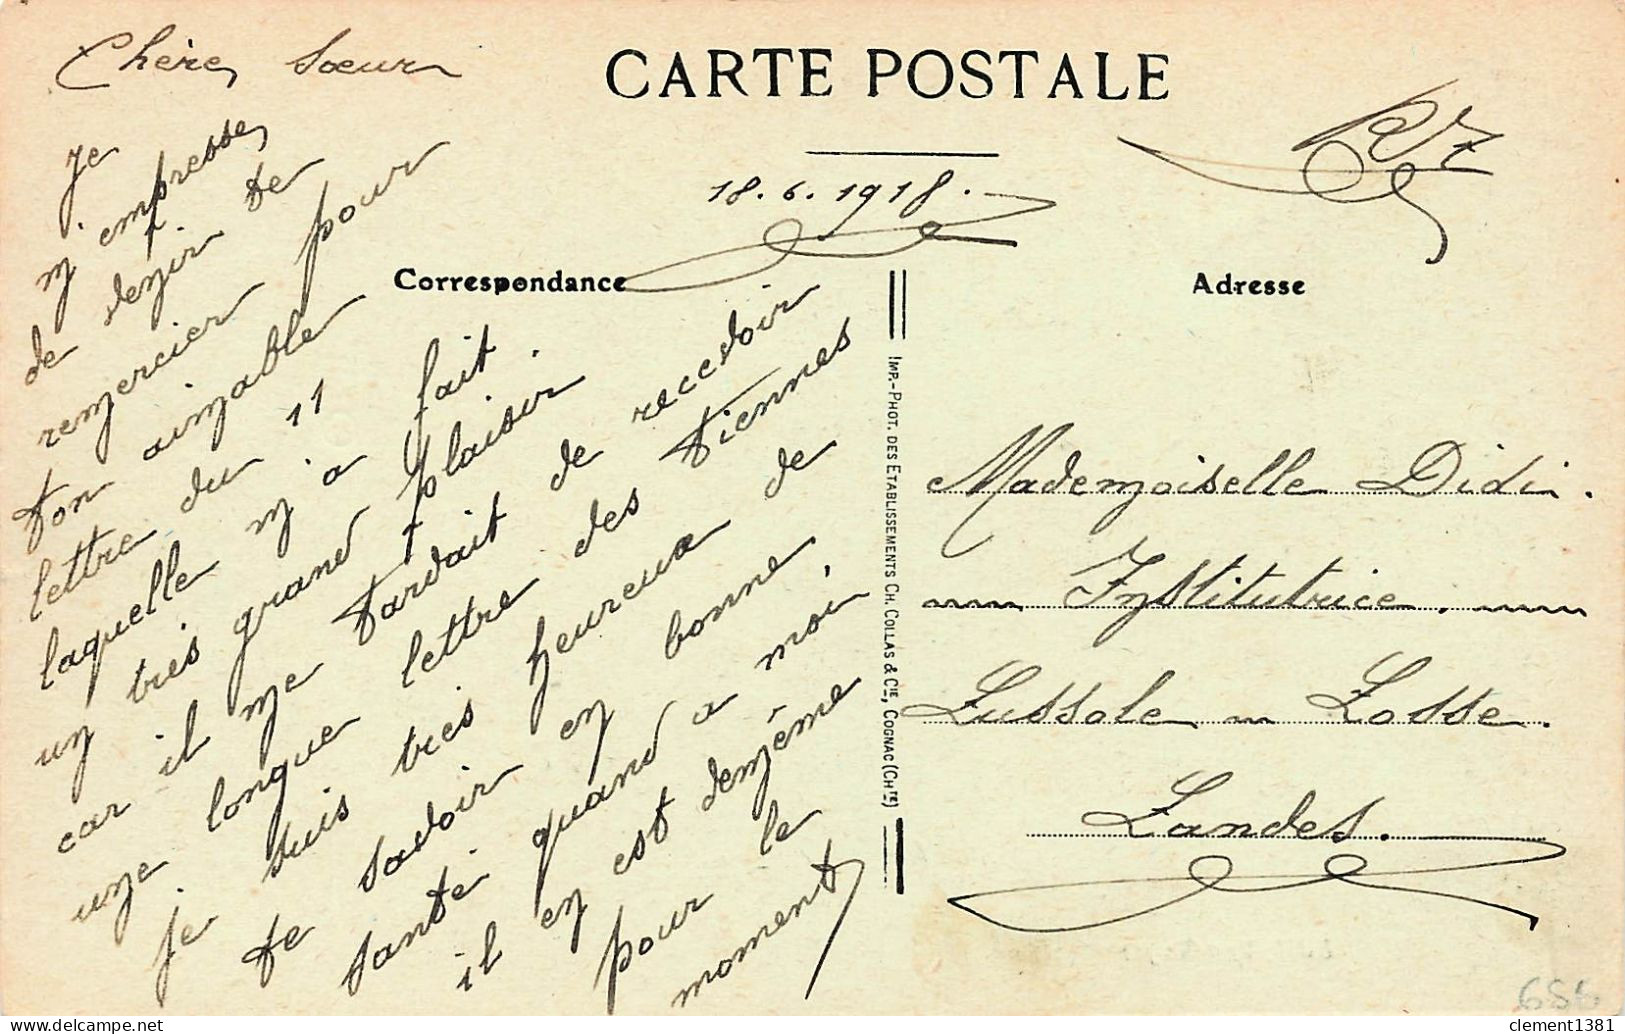 CARTE POSTALE
18.6.1918.
Correspondance
Adresse
Chère, sœur
Je
m'empresse,
de venir te
remercier pour
ton aimable
lettre du 11
laquelle m'a fait
un très grand plaisir.
car il me tardait de recevoir
une longue lettre des tiennes
je suis très heureux de
te savoir en bonne,
santé quand a moi,
il en est demême
pour le
moment
IMP.-PHOT. DES ETABLISSEMENTS CH. COLLAS & CIE, COGNAC (CHTE)
Mademoiselle Didi.
Institutrice.
Lussole Losse.
Landes.
686
clement1381